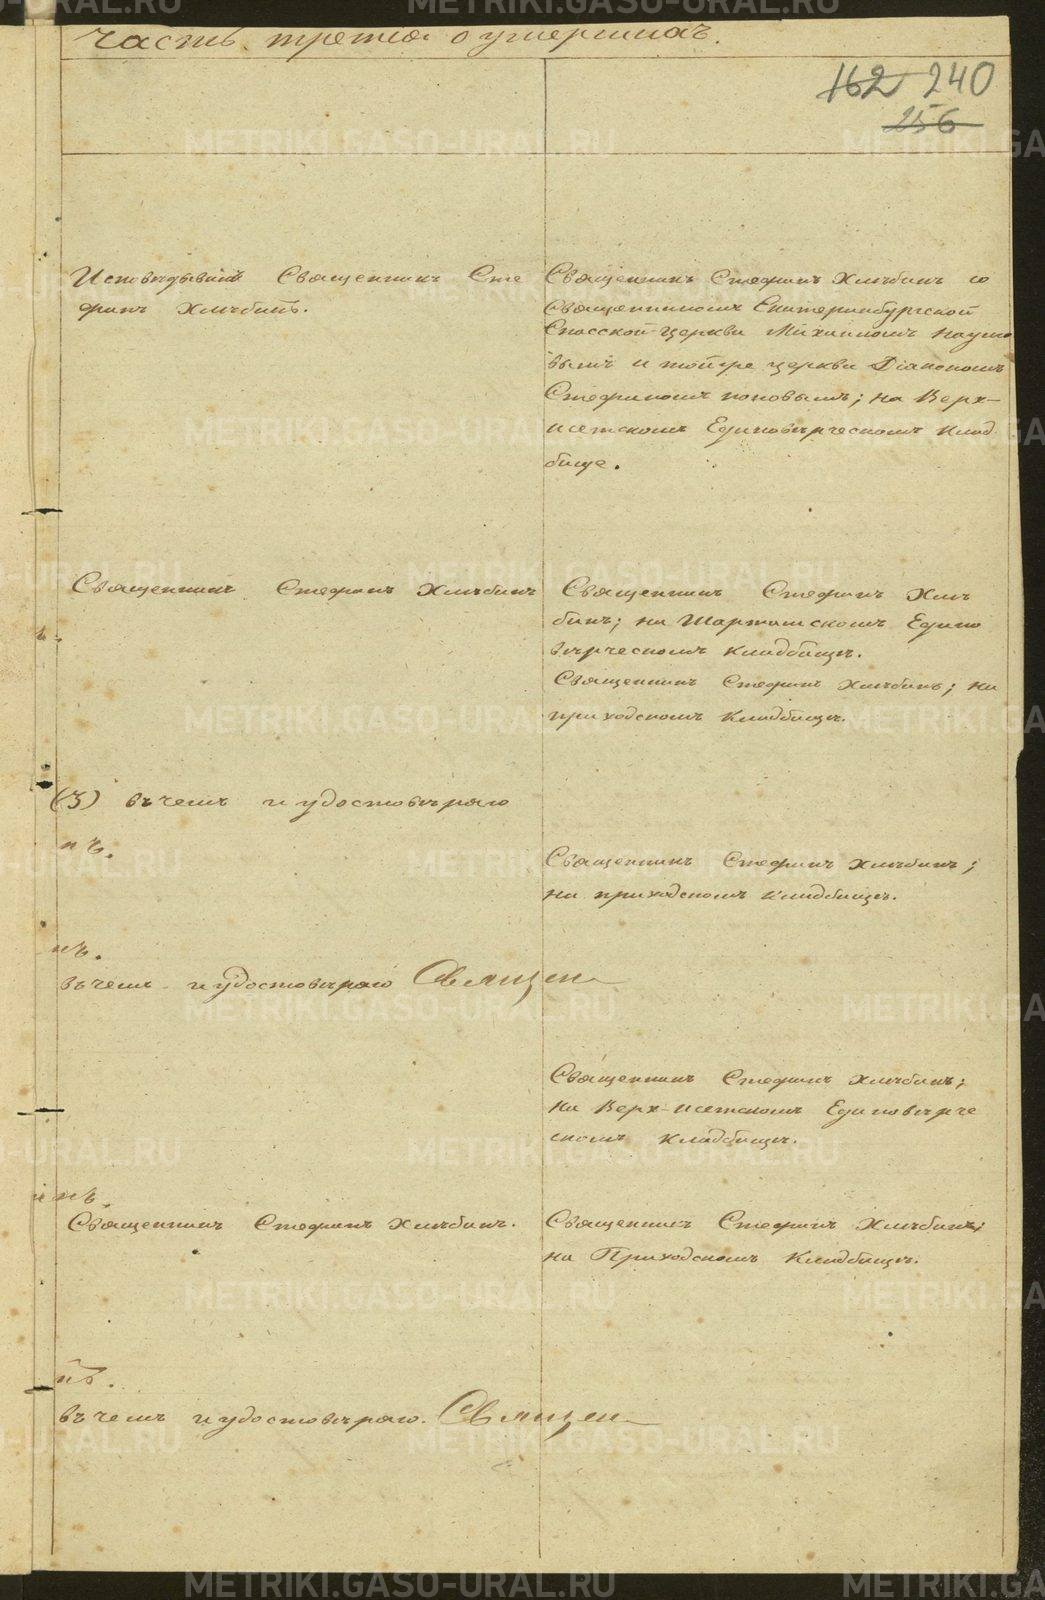 часть третія о умершихъ.
162 240
256
Исповѣдывалъ Священникъ Сте
фанъ Хлѣбинъ.
Священникъ Стефанъ Хлѣбинъ со
Священникомъ Екатеринбургской
Спасской церкви Михаиломъ Наумо
вымъ и той же церкви Діакономъ
Стефаномъ Поповымъ; на Верх-
исетскомъ Единовѣрческомъ клад
бище.
Священникъ Стефанъ Хлѣбинъ
Священникъ Стефанъ Хлѣ
бинъ; на Шарташскомъ Едино
вѣрческомъ кладбищѣ.
Священникъ Стефанъ Хлѣбинъ; на
приходскомъ кладбищѣ.
(3) въ чемъ и удостовѣряю
нъ.
Священникъ Стефанъ Хлѣбинъ;
на приходскомъ кладбищѣ.
нъ.
въ чемъ и удостовѣряю Священ
Священникъ Стефанъ Хлѣбинъ;
на Верх-исетскомъ Единовѣрче
скомъ кладбищѣ.
нъ.
Священникъ Стефанъ Хлѣбинъ.
Священникъ Стефанъ Хлѣбинъ;
на Приходскомъ Кладбищѣ.
нъ.
въ чемъ и удостовѣряю. Священ
METRIKI.GASO-URAL.RU